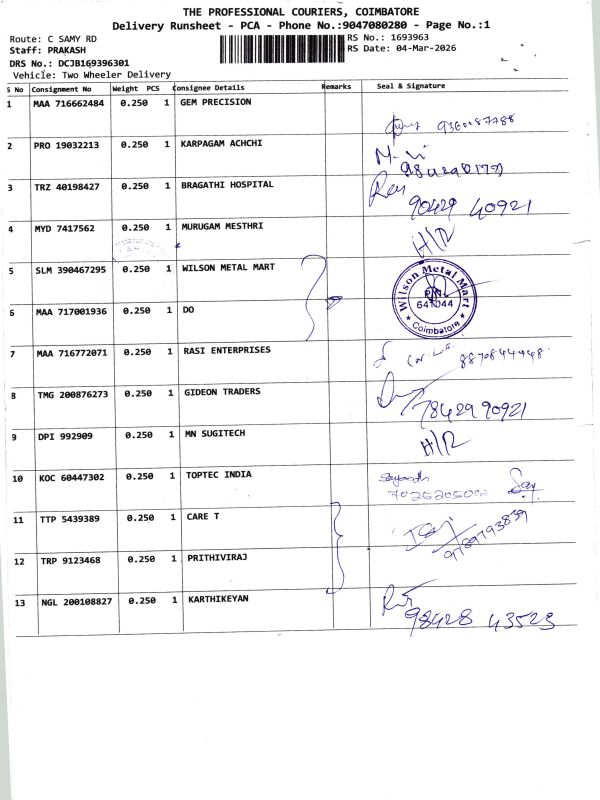 THE PROFESSIONAL COURIERS, COIMBATORE
Delivery Runsheet - PCA - Phone No.:9047080280 - Page No.:1
Route: C SAMY RD
RS No.: 1693963
Staff: PRAKASH
RS Date: 04-Mar-2026
DRS No.: DCJB169396301
Vehicle: Two Wheeler Delivery
S No Consignment No Weight PCS Consignee Details Remarks Seal & Signature
1 MAA 716662484 0.250 1 GEM PRECISION
2 PRO 19032213 0.250 1 KARPAGAM ACHCHI
3 TRZ 40198427 0.250 1 BRAGATHI HOSPITAL
90429 40921
4 MYD 7417562 0.250 1 MURUGAM MESTHRI H/R
5 SLM 390467295 0.250 1 WILSON METAL MART
Wilson Metal Mart
641044
Coimbatore
6 MAA 717001936 0.250 1 DO
7 MAA 716772071 0.250 1 RASI ENTERPRISES 8870844448
8 TMG 200876273 0.250 1 GIDEON TRADERS
7842990921
9 DPI 992909 0.250 1 MN SUGITECH H/R
10 KOC 60447302 0.250 1 TOPTEC INDIA
7025205002
11 TTP 5439389 0.250 1 CARE T
9789793839
12 TRP 9123468 0.250 1 PRITHIVIRAJ
13 NGL 200108827 0.250 1 KARTHIKEYAN
98428 43523